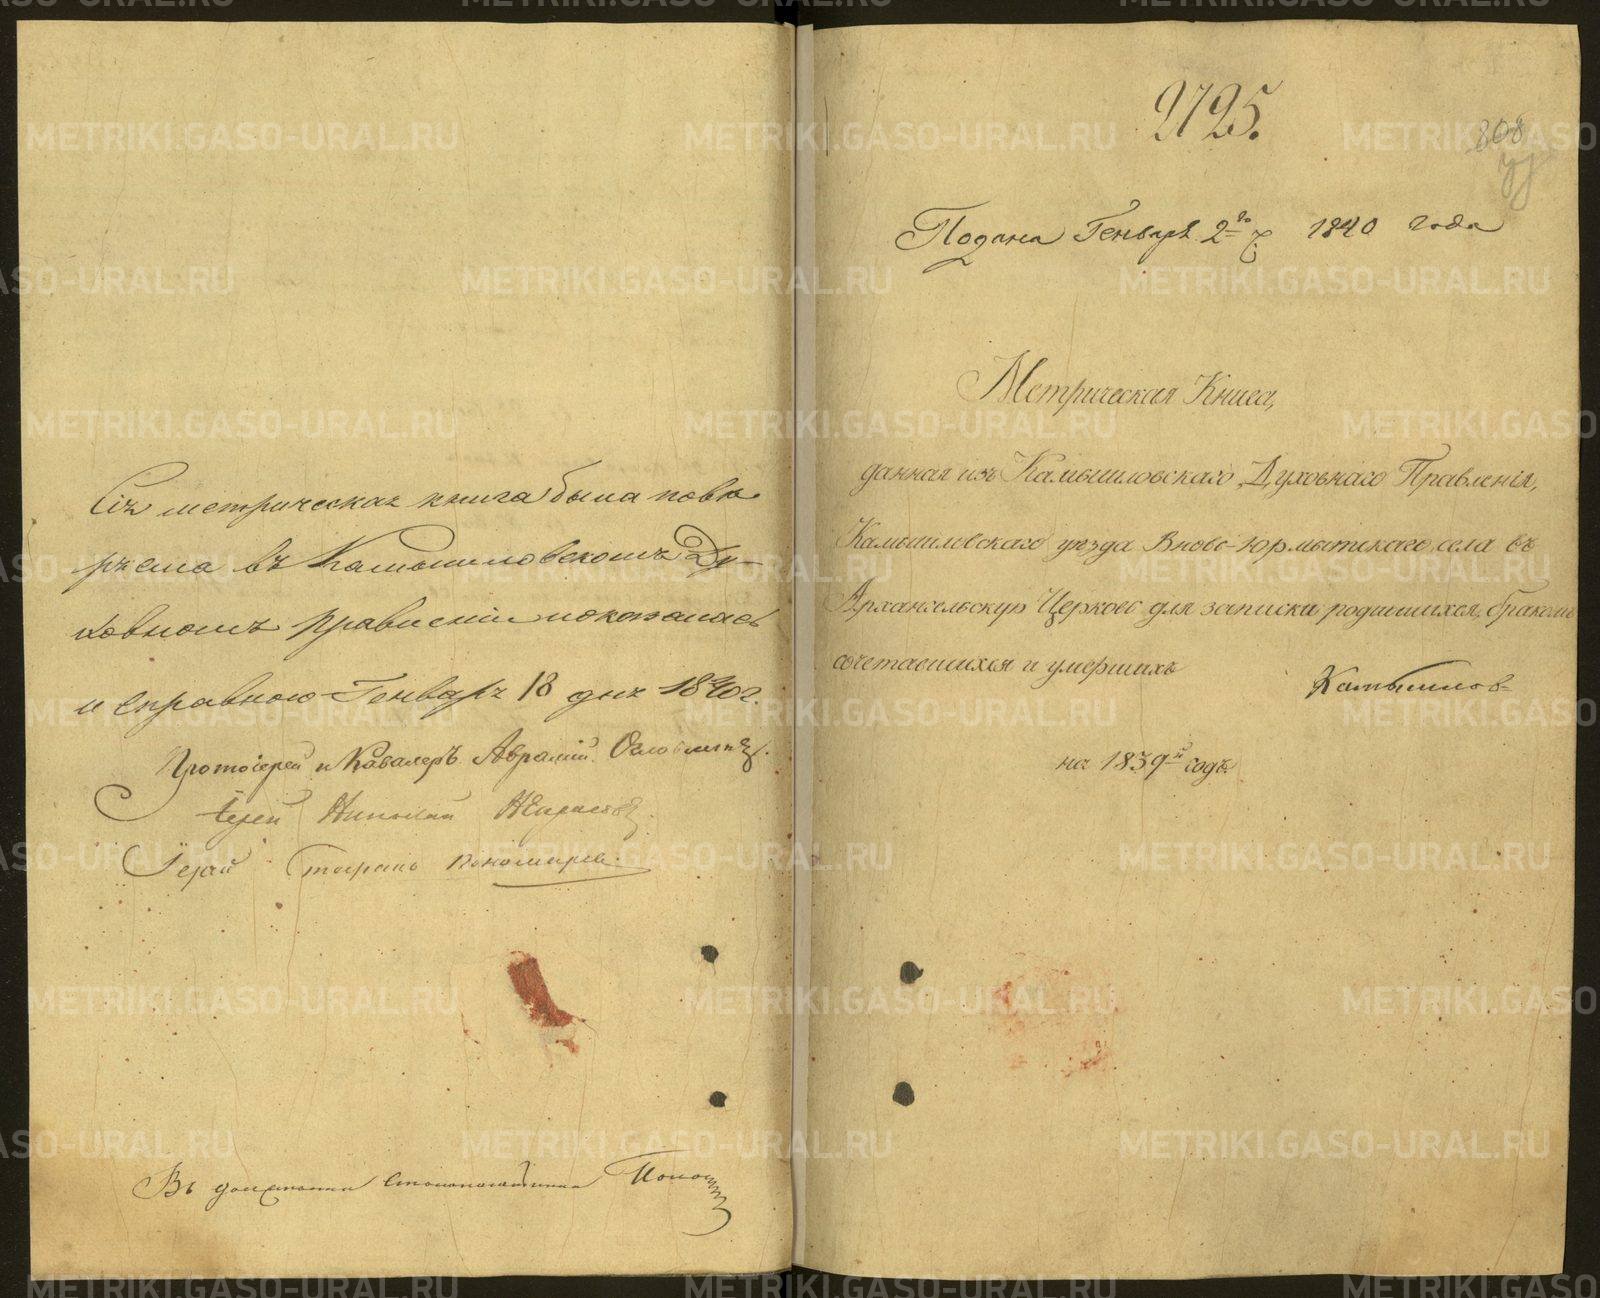 Сія метрическая книга была повѣ-
ряема въ Камышловскомъ Ду-
ховномъ правленіи и оказалась
исправною Генваря 18 дня 1840 г.
Протоіерей и Кавалеръ Аврамій
Іерей Николай
Іерей Стефанъ Пономаревъ.
Въ должности Столоначальника
2725.
808
Подана Генваря 2го ч. 1840 года
Метрическая Книга,
данная изъ Камышловскаго Духовнаго Правленія,
Камышловскаго уѣзда Вновь-Юрмытскаго села въ
Архангельскую Церковь для записки родившихся, бракомъ
сочетавшихся и умершихъ
Камышлов-
на 1839й годъ.
METRIKI.GASO-URAL.RU